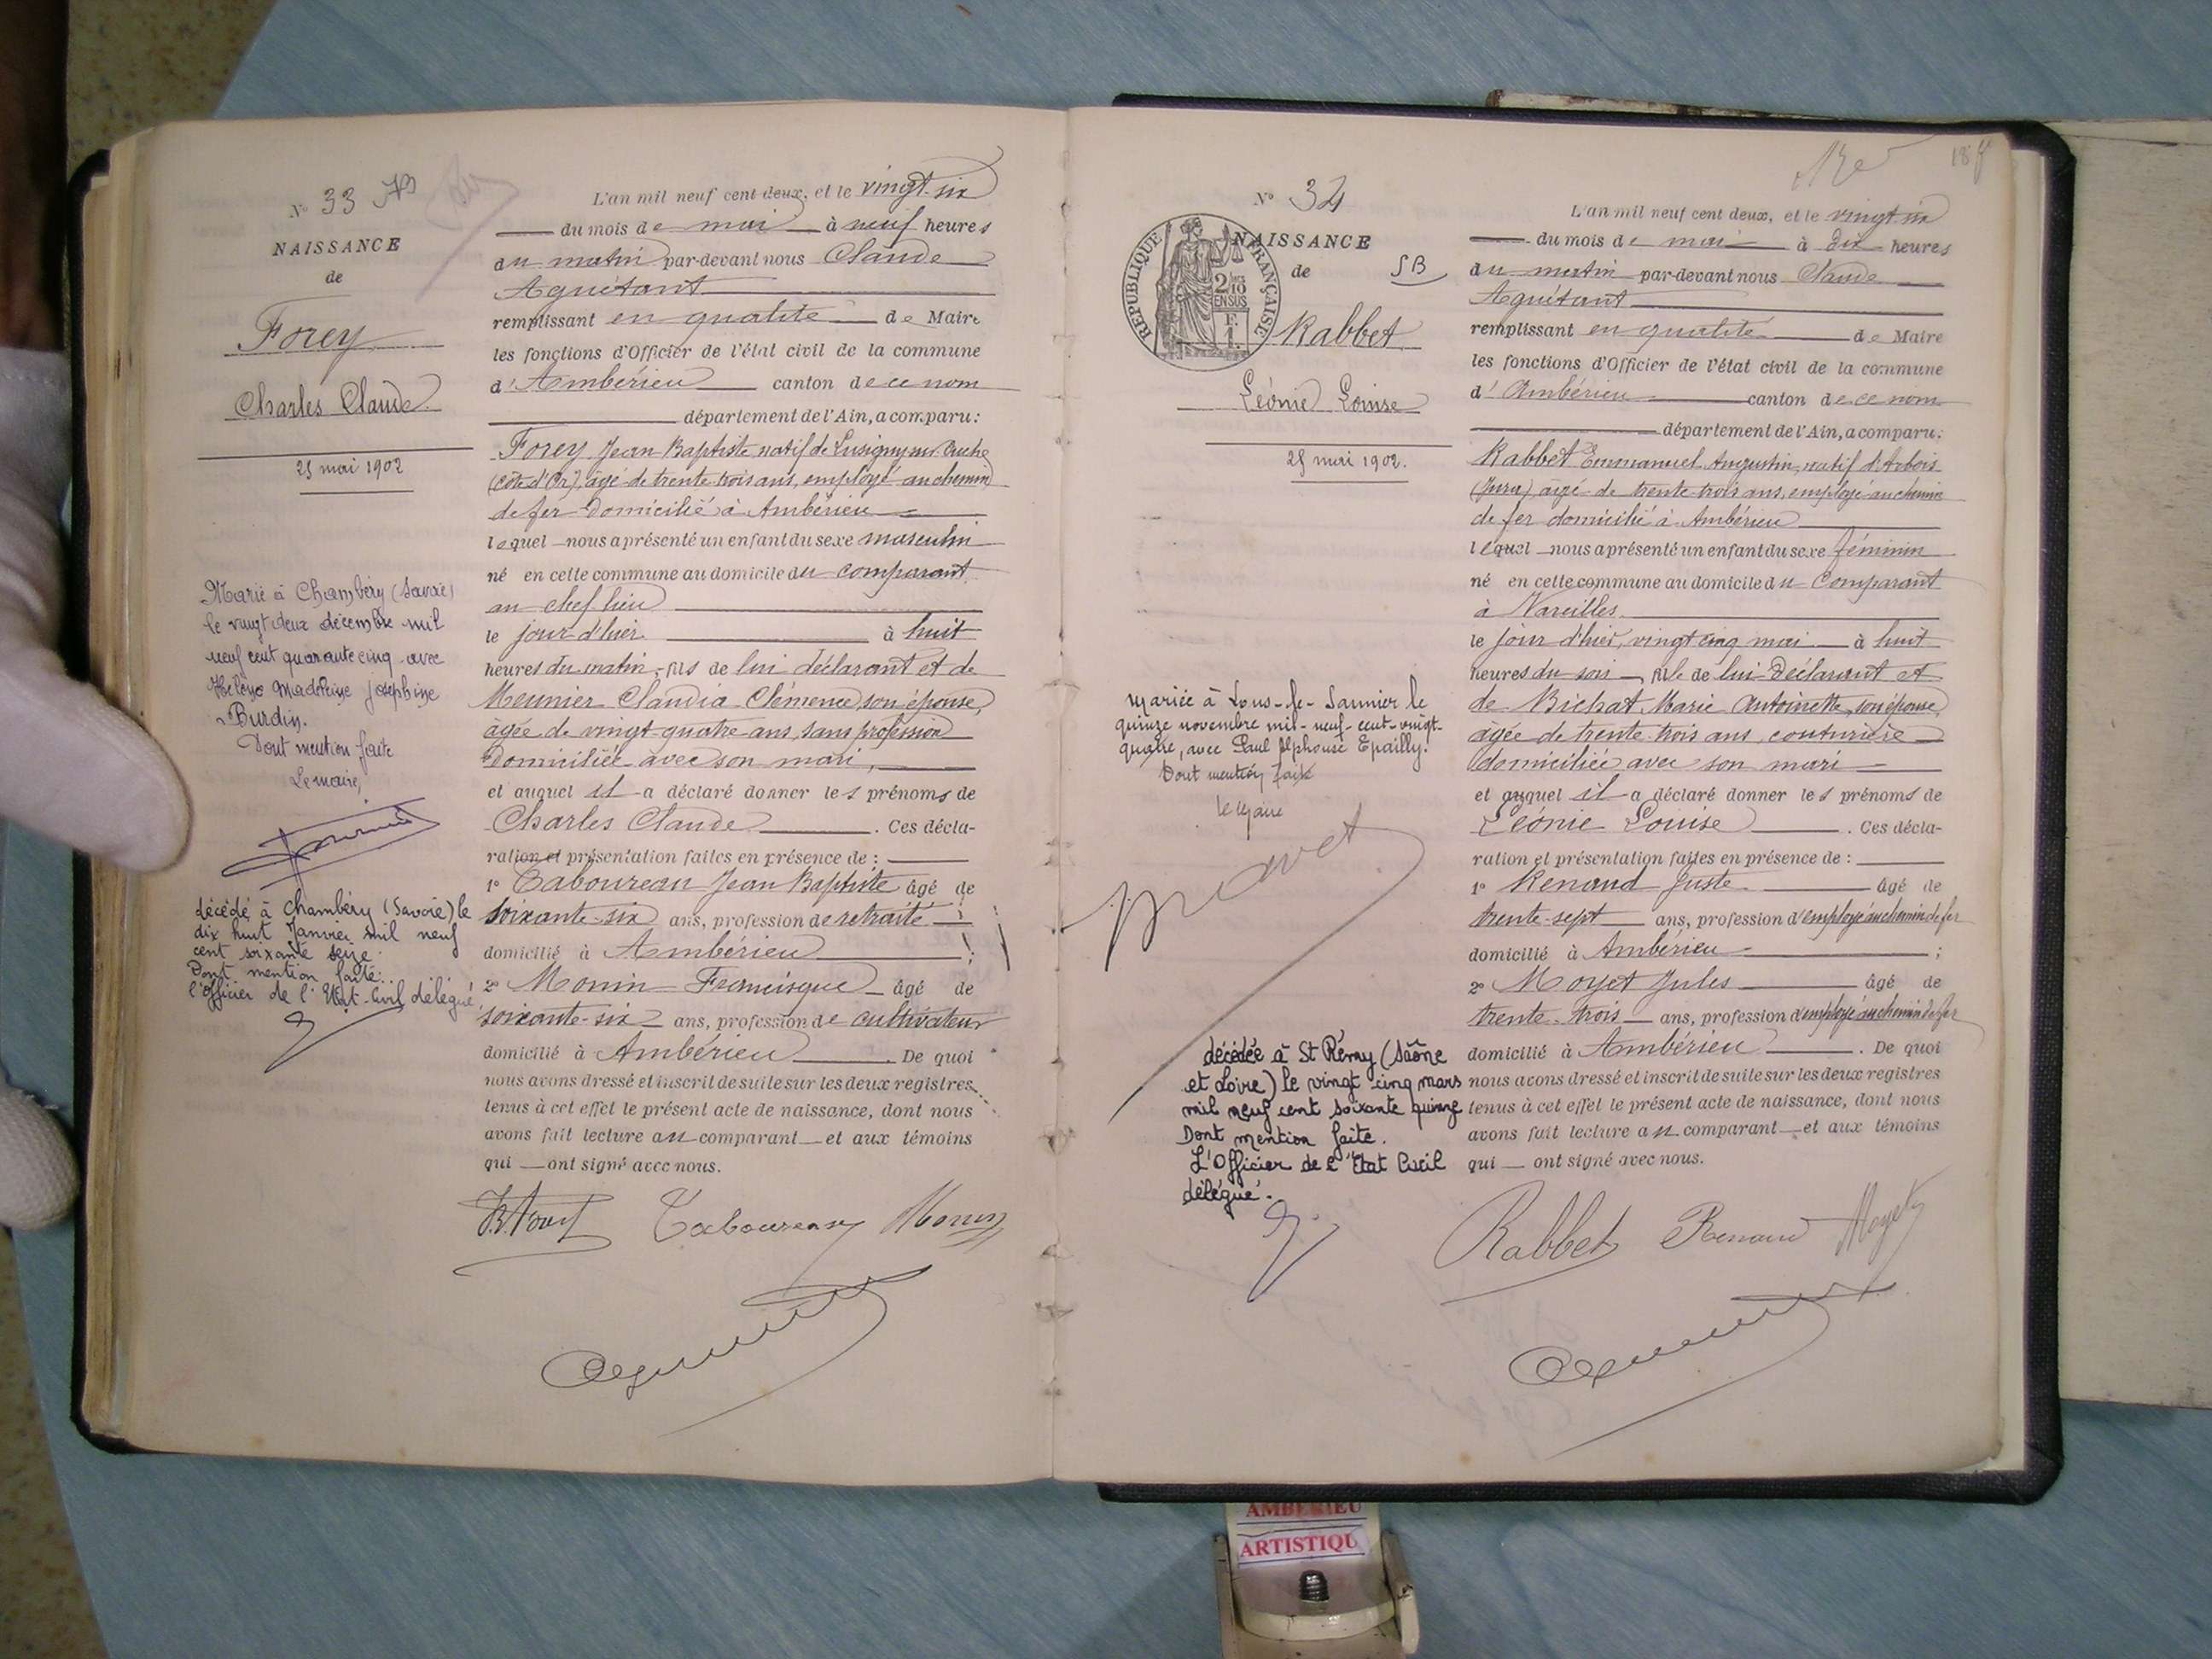 N° 33
NAISSANCE
de
Forey
Charles Claude
25 mai 1902
Marié à Chambéry (Savoie)
le vingt deux décembre mil
neuf cent quarante cinq avec
Hélène Madeleine Joséphine
Burdin.
Dont mention faite
Le maire,
décédé à Chambéry (Savoie) le
dix huit Janvier mil neuf
cent soixante seize.
Dont mention faite.
l'Officier de l'Etat-Civil délégué
L'an mil neuf cent deux, et le vingt-six
du mois de mai à neuf heures
du matin par-devant nous Claude
Aguétant
remplissant en qualité de Maire
les fonctions d'Officier de l'état civil de la commune
d'Ambérieu canton de ce nom
département de l'Ain, a comparu:
Forey Jean Baptiste natif de Lusigny sur Ouche
(Côte d'Or), âgé de trente trois ans, employé au chemin
de fer domicilié à Ambérieu
lequel nous a présenté un enfant du sexe masculin
né en cette commune au domicile du comparant
au chef lieu
le jour d'hier à huit
heures du matin, fils de lui déclarant et de
Meunier Claudia Clémence, son épouse,
âgée de vingt-quatre ans, sans profession
domiciliée avec son mari,
et auquel il a déclaré donner les prénoms de
Charles Claude. Ces décla-
ration et présentation faites en présence de :
1° Taboureau Jean Baptiste âgé de
soixante-six ans, profession de retraité
domicilié à Ambérieu ;
2° Monin Francisque âgé de
soixante-six ans, profession de cultivateur
domicilié à Ambérieu. De quoi
nous avons dressé et inscrit de suite sur les deux registres
tenus à cet effet le présent acte de naissance, dont nous
avons fait lecture au comparant et aux témoins
qui ont signé avec nous.
Taboureau Monin
N° 34
NAISSANCE
de
SB
REPUBLIQUE FRANÇAISE
2/10
EN SUS
Rabbet
Léonie Louise
25 mai 1902.
mariée à Lons-le-Saunier le
quinze novembre mil-neuf-cent-vingt-
quatre, avec Paul Alphonse Epailly.
Dont mention faite
le Maire
décédée à St Rémy (Saône
et Loire) le vingt cinq mars
mil neuf cent soixante quinze
Dont mention faite.
L'Officier de l'Etat Civil
délégué.
L'an mil neuf cent deux, et le vingt six
du mois de mai à dix heures
du matin par-devant nous Claude
Aguétant
remplissant en qualité de Maire
les fonctions d'Officier de l'état civil de la commune
d'Ambérieu canton de ce nom
département de l'Ain, a comparu:
Rabbet Emmanuel Augustin, natif d'Arbois
(Jura) âgé de trente trois ans, employé au chemin
de fer domicilié à Ambérieu
lequel nous a présenté un enfant du sexe féminin
né en cette commune au domicile du Comparant
à Vareilles
le jour d'hier, vingt cinq mai à huit
heures du soir, fille de lui Déclarant et
de Bichat Marie Antoinette, son épouse,
âgée de trente trois ans, couturière
domiciliée avec son mari
et auquel il a déclaré donner les prénoms de
Léonie Louise. Ces décla-
ration et présentation faites en présence de :
1° Renaud Juste âgé de
trente-sept ans, profession d'employé au chemin de fer
domicilié à Ambérieu ;
2° Moyet Jules âgé de
trente-trois ans, profession d'employé au chemin de fer
domicilié à Ambérieu. De quoi
nous avons dressé et inscrit de suite sur les deux registres
tenus à cet effet le présent acte de naissance, dont nous
avons fait lecture au comparant et aux témoins
qui ont signé avec nous.
Rabbet Renaud Moyet
AMBERIEU
ARTISTIQU